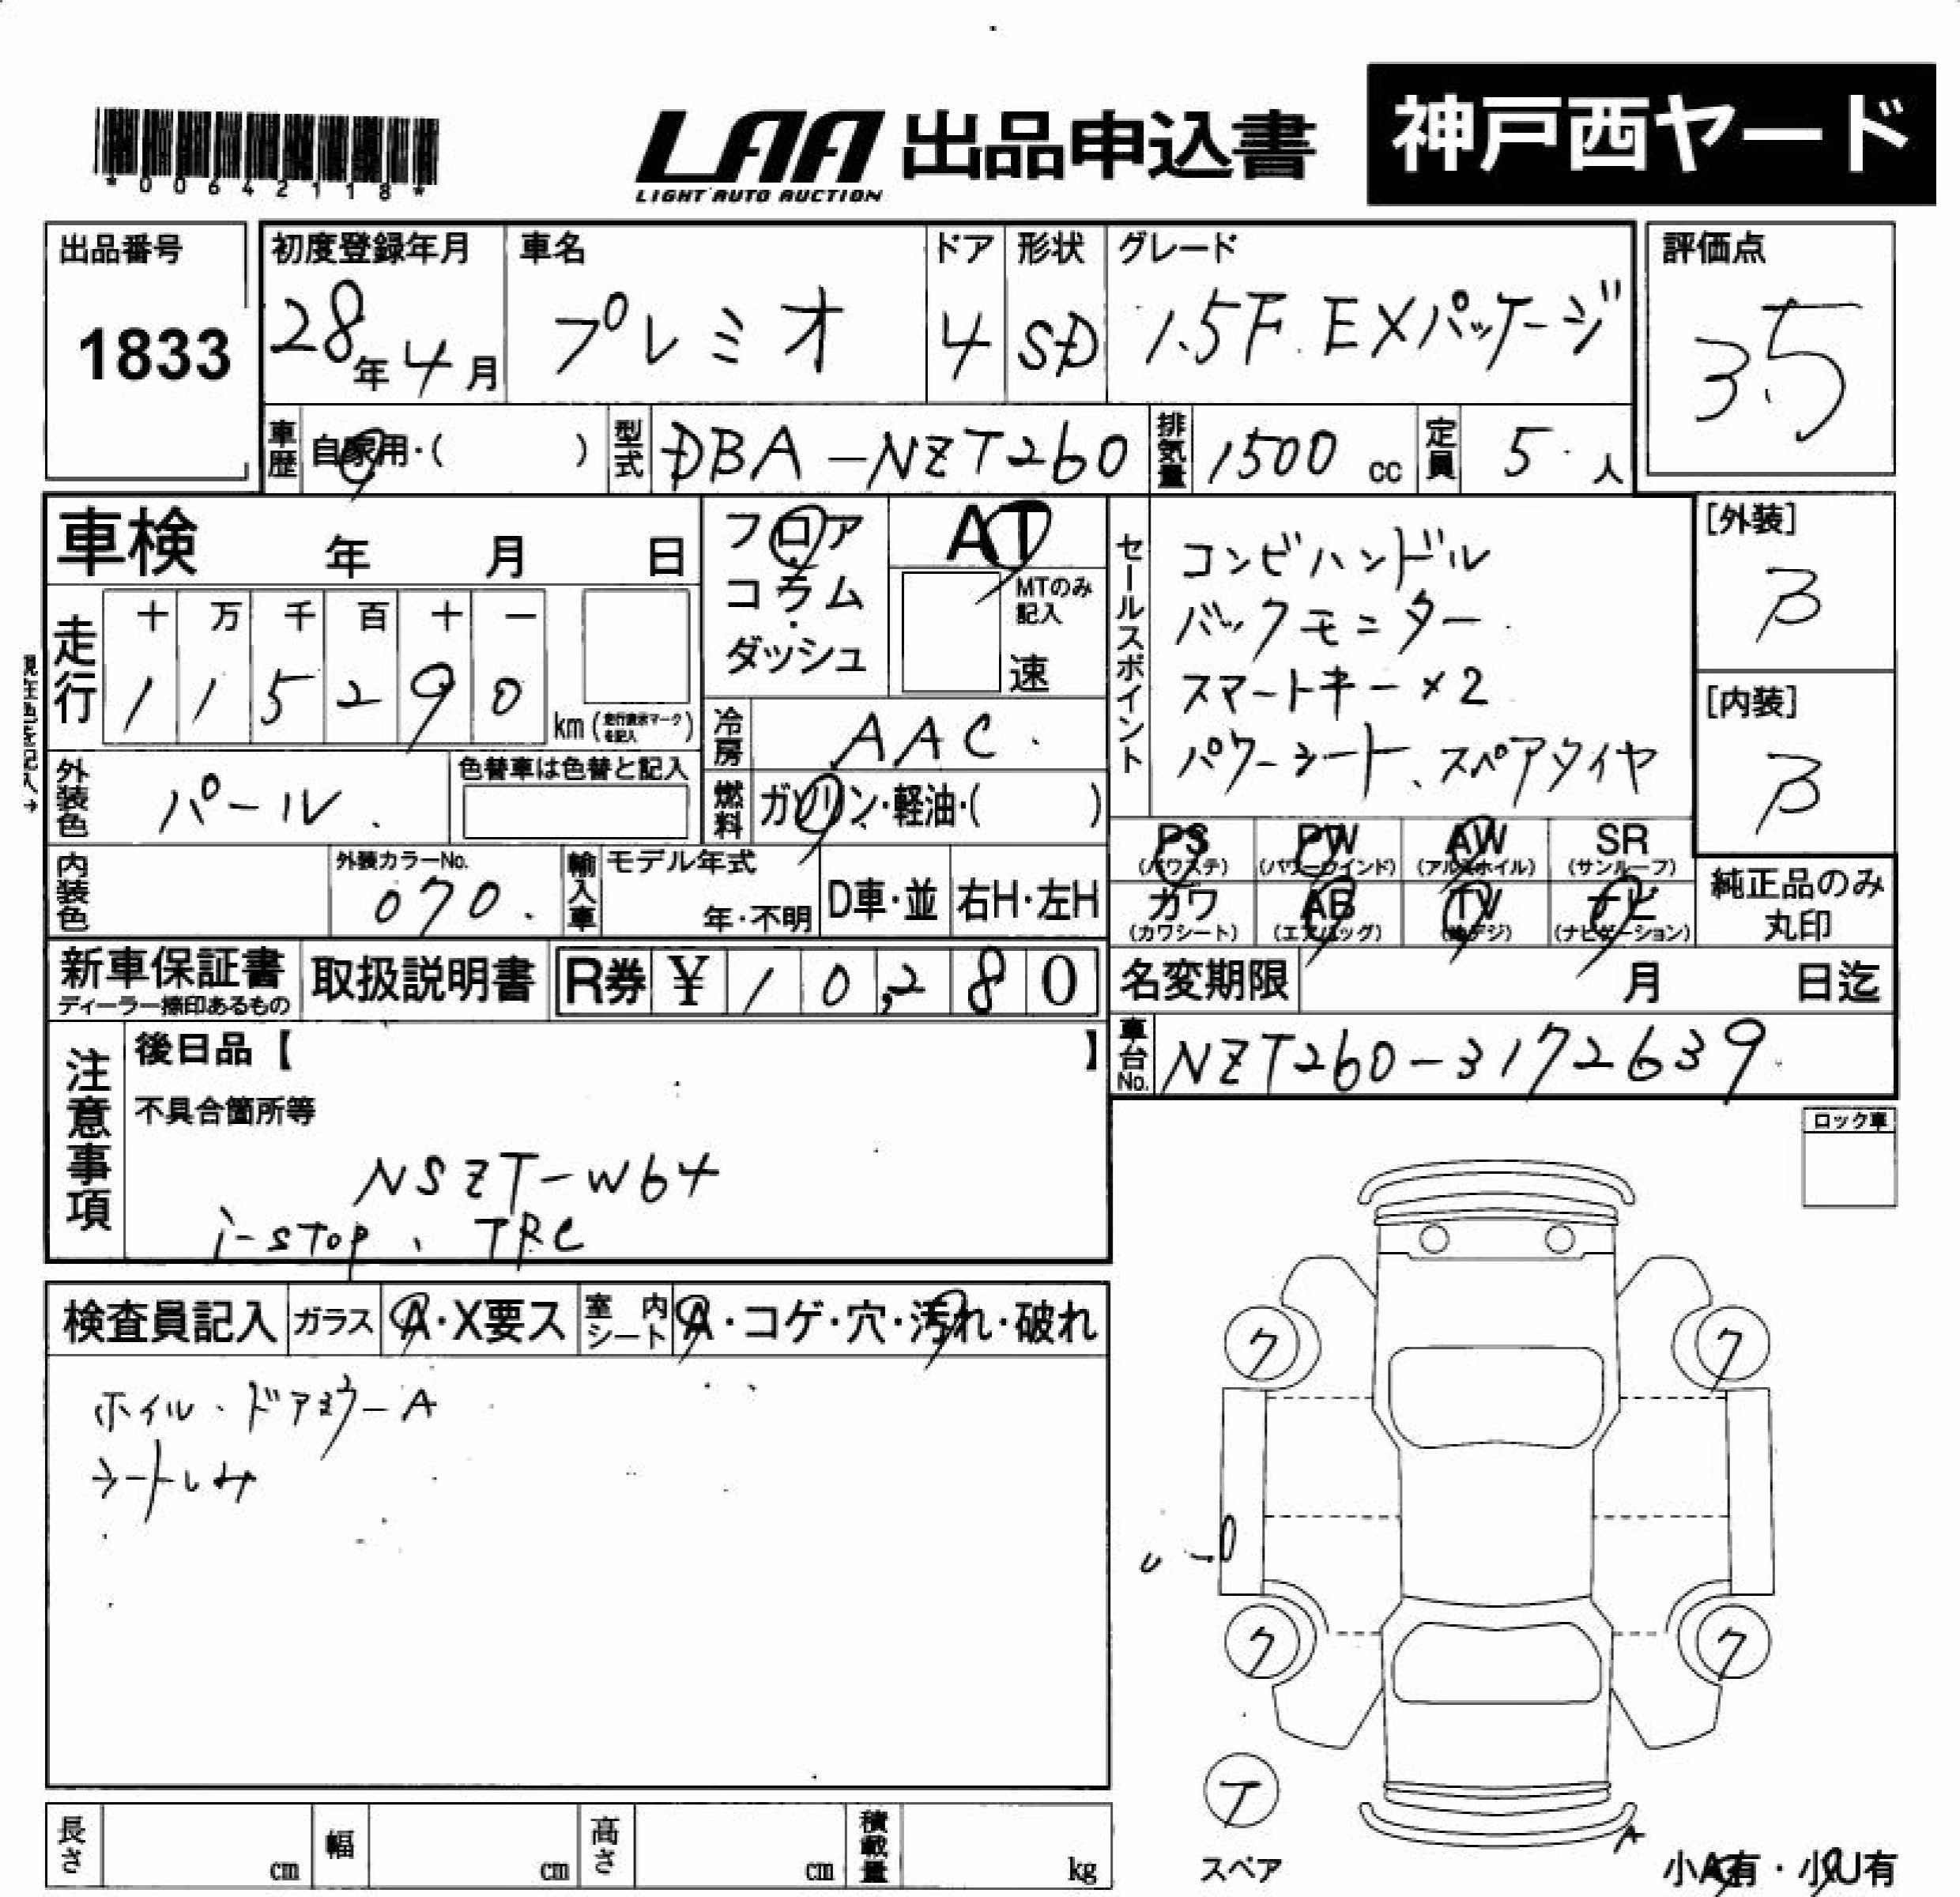 *00642118*
LAA 出品申込書 神戸西ヤード
LIGHT AUTO AUCTION
出品番号 1833
初度登録年月 28年4月
車名 プレミオ
ドア 4
形状 SD
グレード 1.5F EXパッケージ
評価点 3.5
車歴 自家用・( )
型式 DBA-NZT260
排気量 1500 cc
定員 5人
車検 年 月 日
フロア
コラム
ダッシュ
AT
MTのみ記入
速
走行 十 万 千 百 十 一
1 1 5 2 9 0 km (走行表示マークを記入)
現在色を記入→
冷房 AAC
外装色 パール
色替車は色替と記入
燃料 ガソリン・軽油・( )
内装色
外装カラーNo. 070
輸入車 モデル年式 年・不明 D車・並 右H・左H
セールスポイント
コンビハンドル
バックモニター
スマートキー×2
パワーシート、スペアタイヤ
[外装] B
[内装] B
PS (パワステ) PW (パワーウインド) AW (アルミホイル) SR (サンルーフ)
カワ (カワシート) AB (エアバッグ) TV (地デジ) ナビ (ナビゲーション)
純正品のみ丸印
新車保証書 ディーラー捺印あるもの
取扱説明書
R券 ¥ 10,280
名変期限 月 日迄
車台No. NZT260-3172639
注意事項
後日品【 】
不具合箇所等
NSZT-W64
i-stop、TRC
ロック車
検査員記入 ガラス A・X要ス 室内シート A・コゲ・穴・汚れ・破れ
ホイル・ドアミラーA
シートしみ
ク ク
ク ク
テ
スペア
A
小A有・小U有
長さ cm 幅 cm 高さ cm 積載量 kg